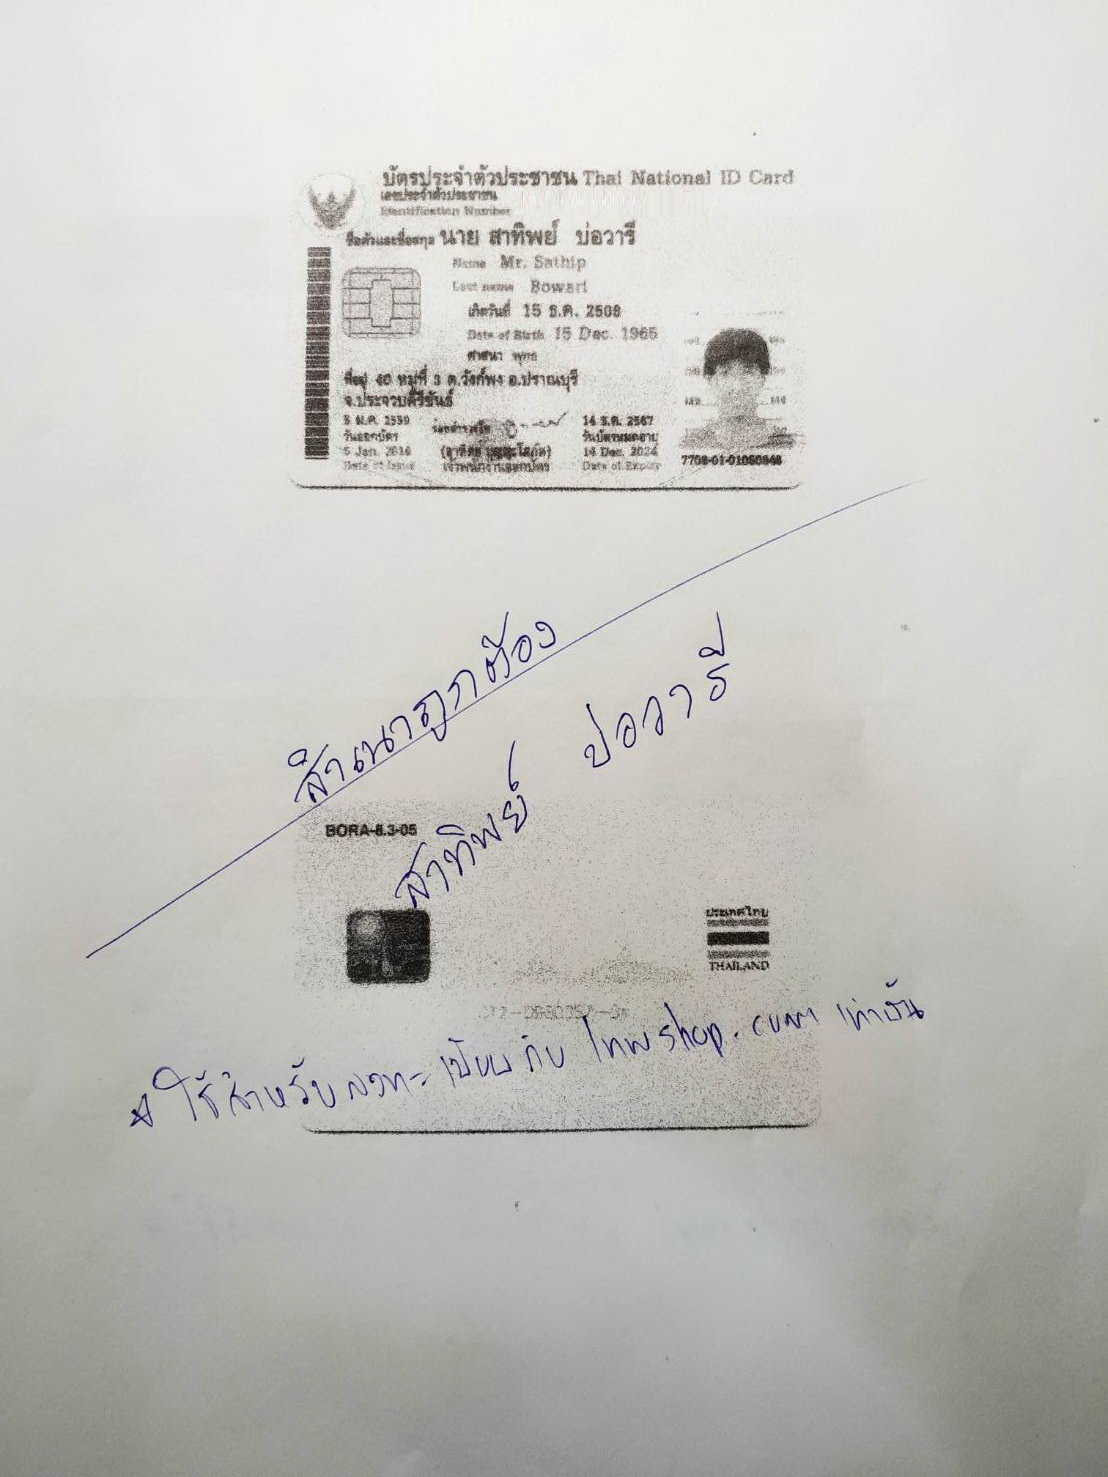 บัตรประจำตัวประชาชน Thai National ID Card
เลขประจำตัวประชาชน
Identification Number
ชื่อตัวและชื่อสกุล นาย สาทิพย์ บ่อวารี
Name Mr. Sathip
Last name Bowari
เกิดวันที่ 15 ธ.ค. 2508
Date of Birth 15 Dec. 1965
ศาสนา พุทธ
ที่อยู่ 40 หมู่ที่ 3 ต.วังก์พง อ.ปราณบุรี
จ.ประจวบคีรีขันธ์
5 ม.ค. 2559
14 ธ.ค. 2567
วันออกบัตร
วันบัตรหมดอายุ
5 Jan. 2016
14 Dec. 2024
Date of Issue
เจ้าพนักงานออกบัตร
Date of Expiry
7708-01-01050848
สำเนาถูกต้อง
สาทิพย์ บ่อวารี
BORA-8.3-05
ประเทศไทย
THAILAND
ใช้สำหรับลงทะเบียนกับ เท่านั้น